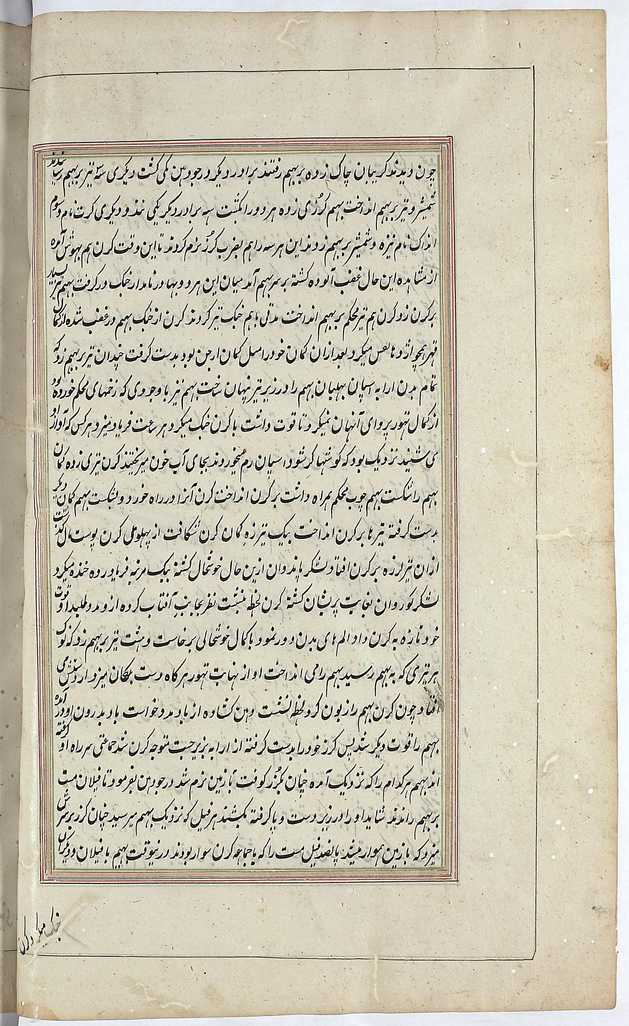 چون دیدند گریبان چاک زده بر بهیم رفتند برادر دیگر درجودهن کمی کشت دیگری سه تیر بر بهیم رسانید
شمشیر و تیر بر بهیم انداخت بهیم گرزی زده هر دو را بکشت سه برادر دیگر یکی نند و دیگری کرت نام و سوم
انداک نام نیزه و شمشیر بر بهیم زدند این هر سه را هم بضرب گرز نرم کردند تا این وقت کرن هم بهوش آمده
از مشاهده این حال غضب آلوده گشته بر سر بهیم آمد میان این هر دو بهادر نامدار جنک در گرفت بهیم تیر بسیار
بر کرن زد کرن هم تیر محکم بر بهیم انداخت مدتی باهم جنک تیر کردند کرن از جنک بهیم در غضب شده از کمان
قهر همچو اژدها نفس میکرد بعد ازان کمان خود را مثل کمان ارجن بود بدست گرفت چندان تیر بر بهیم زد که
تمام بدن ارابه سپان بهلبان بهیم را در زیر تیر پنهان ساخت بهیم نیز با وجودی که زخمهای محکم خورده بود
از کمال تهور پروای آنها نمیکرد تا قوت داشت با کرن جنک میکرد و هر ساعت فریاد میزد و هر کس که آواز او
می شنید نزدیک بود که گوشها کر شود اسپان رم میخوردند بجای آب خون میریختند کرن تیری زده کمان
بهیم را شکست بهیم چوب محکم همراه داشت بر کرن انداخت کرن آنرا در راه خورد و شکست بهیم کمان دیگر
بدست گرفته تیرها بر کرن انداخت بیک تیر زه کمان کرن شکافت از پهلوی کرن پوست مال گذشت
ازان تیر لرزه بر کرن افتاد لشکر پاندوان ازین حال خوشحال گشته بیک مرتبه فریاد زده خنده میکرد
لشکر کوروان بغایت پریشان گشته کرن لحظه نشست نظر بجانب آفتاب کرده از و مدد طلبید او قوت
خود تازه به کرن داد المهای بدن دور نمود با کمال خوشحالی برخاست و هشت تیر بر بهیم زد که نوک
هر تیری که به بهیم رسید بهیم را می انداخت او از نهایت تهور هر گاه دست بکمان میزد از دستش می
افتاد چون کرن بهیم را زبون کرد لحظه نشست دهن گشاده از باد مدد خواست باد بدرون او درآمد
بهیم را قوت دیگر شد پس گرز خود را بدست گرفته از ارابه بزیر جست متوجه کرن شد جماعتی همراه او گفته
اند بهیم هر کدام را که نزدیک آمده چنان بگرز کوفت تا بزمین نرم شد درجودهن بفرمود تا فیلان مست
بر بهیم راندند شاید او را در زیر دست و پا گرفته بکشند هر فیل که نزدیک بهیم میرسید چنان گرز بر سرش
میزد که با زمین هموار میشد پانصد فیل مست را که با جماعه کرن سوار بودند در نیوقت بهیم با فیلان و دیگران
جنک میکرد کرن